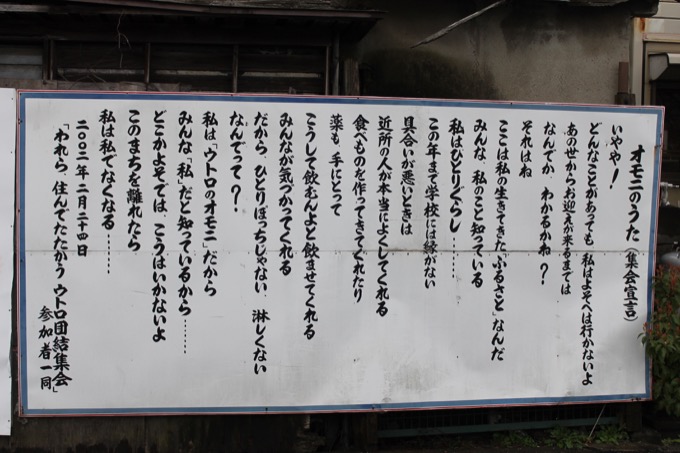 オモニのうた(集会宣言)
いやや!
どんなことがあっても 私はよそへは行かないよ
あの世からお迎えが来るまでは
なんでか、わかるかね?
それはね
ここは私の生きてきた「ふるさと」なんだ
みんな、私のこと知っている
私はひとりぐらし……
この年まで学校には縁がない
具合いが悪いときは
近所の人が本当によくしてくれる
食べものを作ってきてくれたり
薬も、手にとって
こうして飲むんよと飲ませてくれる
みんなが気づかってくれる
だから、ひとりぼっちじゃない、淋しくない
なんでって?
私は「ウトロのオモニ」だから
みんな「私」だと知っているから……
どこかよそでは、こうはいかないよ
このまちを離れたら
私は私でなくなる……
二〇〇二年二月二十四日
「われら、住んでたたかう ウトロ団結集会」
参加者一同